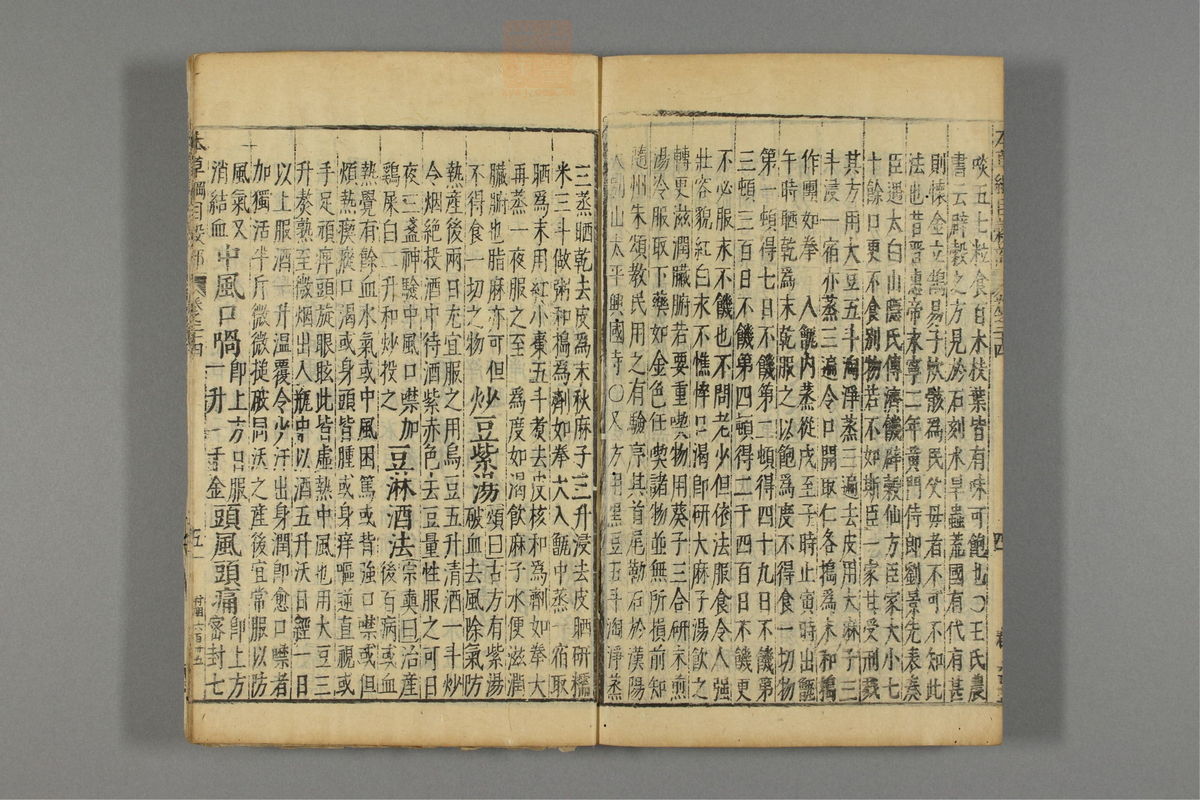 啖五七粒食百木枝葉皆有味可飽也〇王氏農
書云辟穀之方見於石刻水旱蟲荒國有代有甚
則懷金立鵠易子炊骸為民父母者不可不知此
法也昔晉惠帝永寧二年黃門侍郎劉景先表奏
臣遇太白山隱氏傳濟饑辟穀仙方臣家大小七
十餘口更不食別物若不如斯臣一家甘受刑戮
其方用大豆五斗淘淨蒸三遍去皮用大麻子三
斗浸一宿亦蒸三遍令口開取仁各搗為末和搗
作團如拳 入甑內蒸從戌至子時止寅時出甑
午時晒乾為末乾服之以飽為度不得食一切物
第一頓得七日不饑第二頓得四十九日不饑第
三頓三百日不饑第四頓得二千四百日不饑更
不必服永不饑也不問老少但依法服食令人強
壯容貌紅白永不憔悴口渴即研大麻子湯飲之
轉更滋潤臟腑若要重喫物用葵子三合研末煎
湯冷服取下藥如金色任喫諸物並無所損前知
隨州朱頌教民用之有驗序其首尾勒石於漢陽
大別山太平興國寺〇又方用黑豆五斗淘淨蒸
三蒸晒乾去皮為末秋麻子三升浸去皮晒研糯
米三斗做粥和搗為劑如拳大入甑中蒸一宿取
晒為末用紅小棗五斗煑去皮核和為劑如拳大
再蒸一夜服之至 為度如渴飲麻子水便滋潤
臟腑也脂麻亦可但
不得食一切之物 炒豆紫湯頌曰古方有紫湯破血去風除氣防
熱產後兩日尤宜服之用烏豆五升清酒一斗炒
令烟絕投酒中待酒紫赤色去豆量性服之可日
夜三盞神驗中風口噤加
鷄屎白二升和炒投之 豆淋酒法宗奭曰治產後百病或血
熱覺有餘血水氣或中風困篤或背強口噤或但
煩熱瘈瘲口渴或身頭皆腫或身痒嘔逆直視或
手足頑痹頭旋眼眩此皆虛熱中風也用大豆三
升熬熟至微烟出入瓶中以酒五升沃日經一日
以上服酒一升溫覆令少汗出身潤即愈口噤者
加獨活半斤微微搥破同沃之產後宜常服以防
風氣又
消結血 中風口喎即上方日服一升千金頭風頭痛即上方密封七
本草綱目穀部 卷之二十四 五